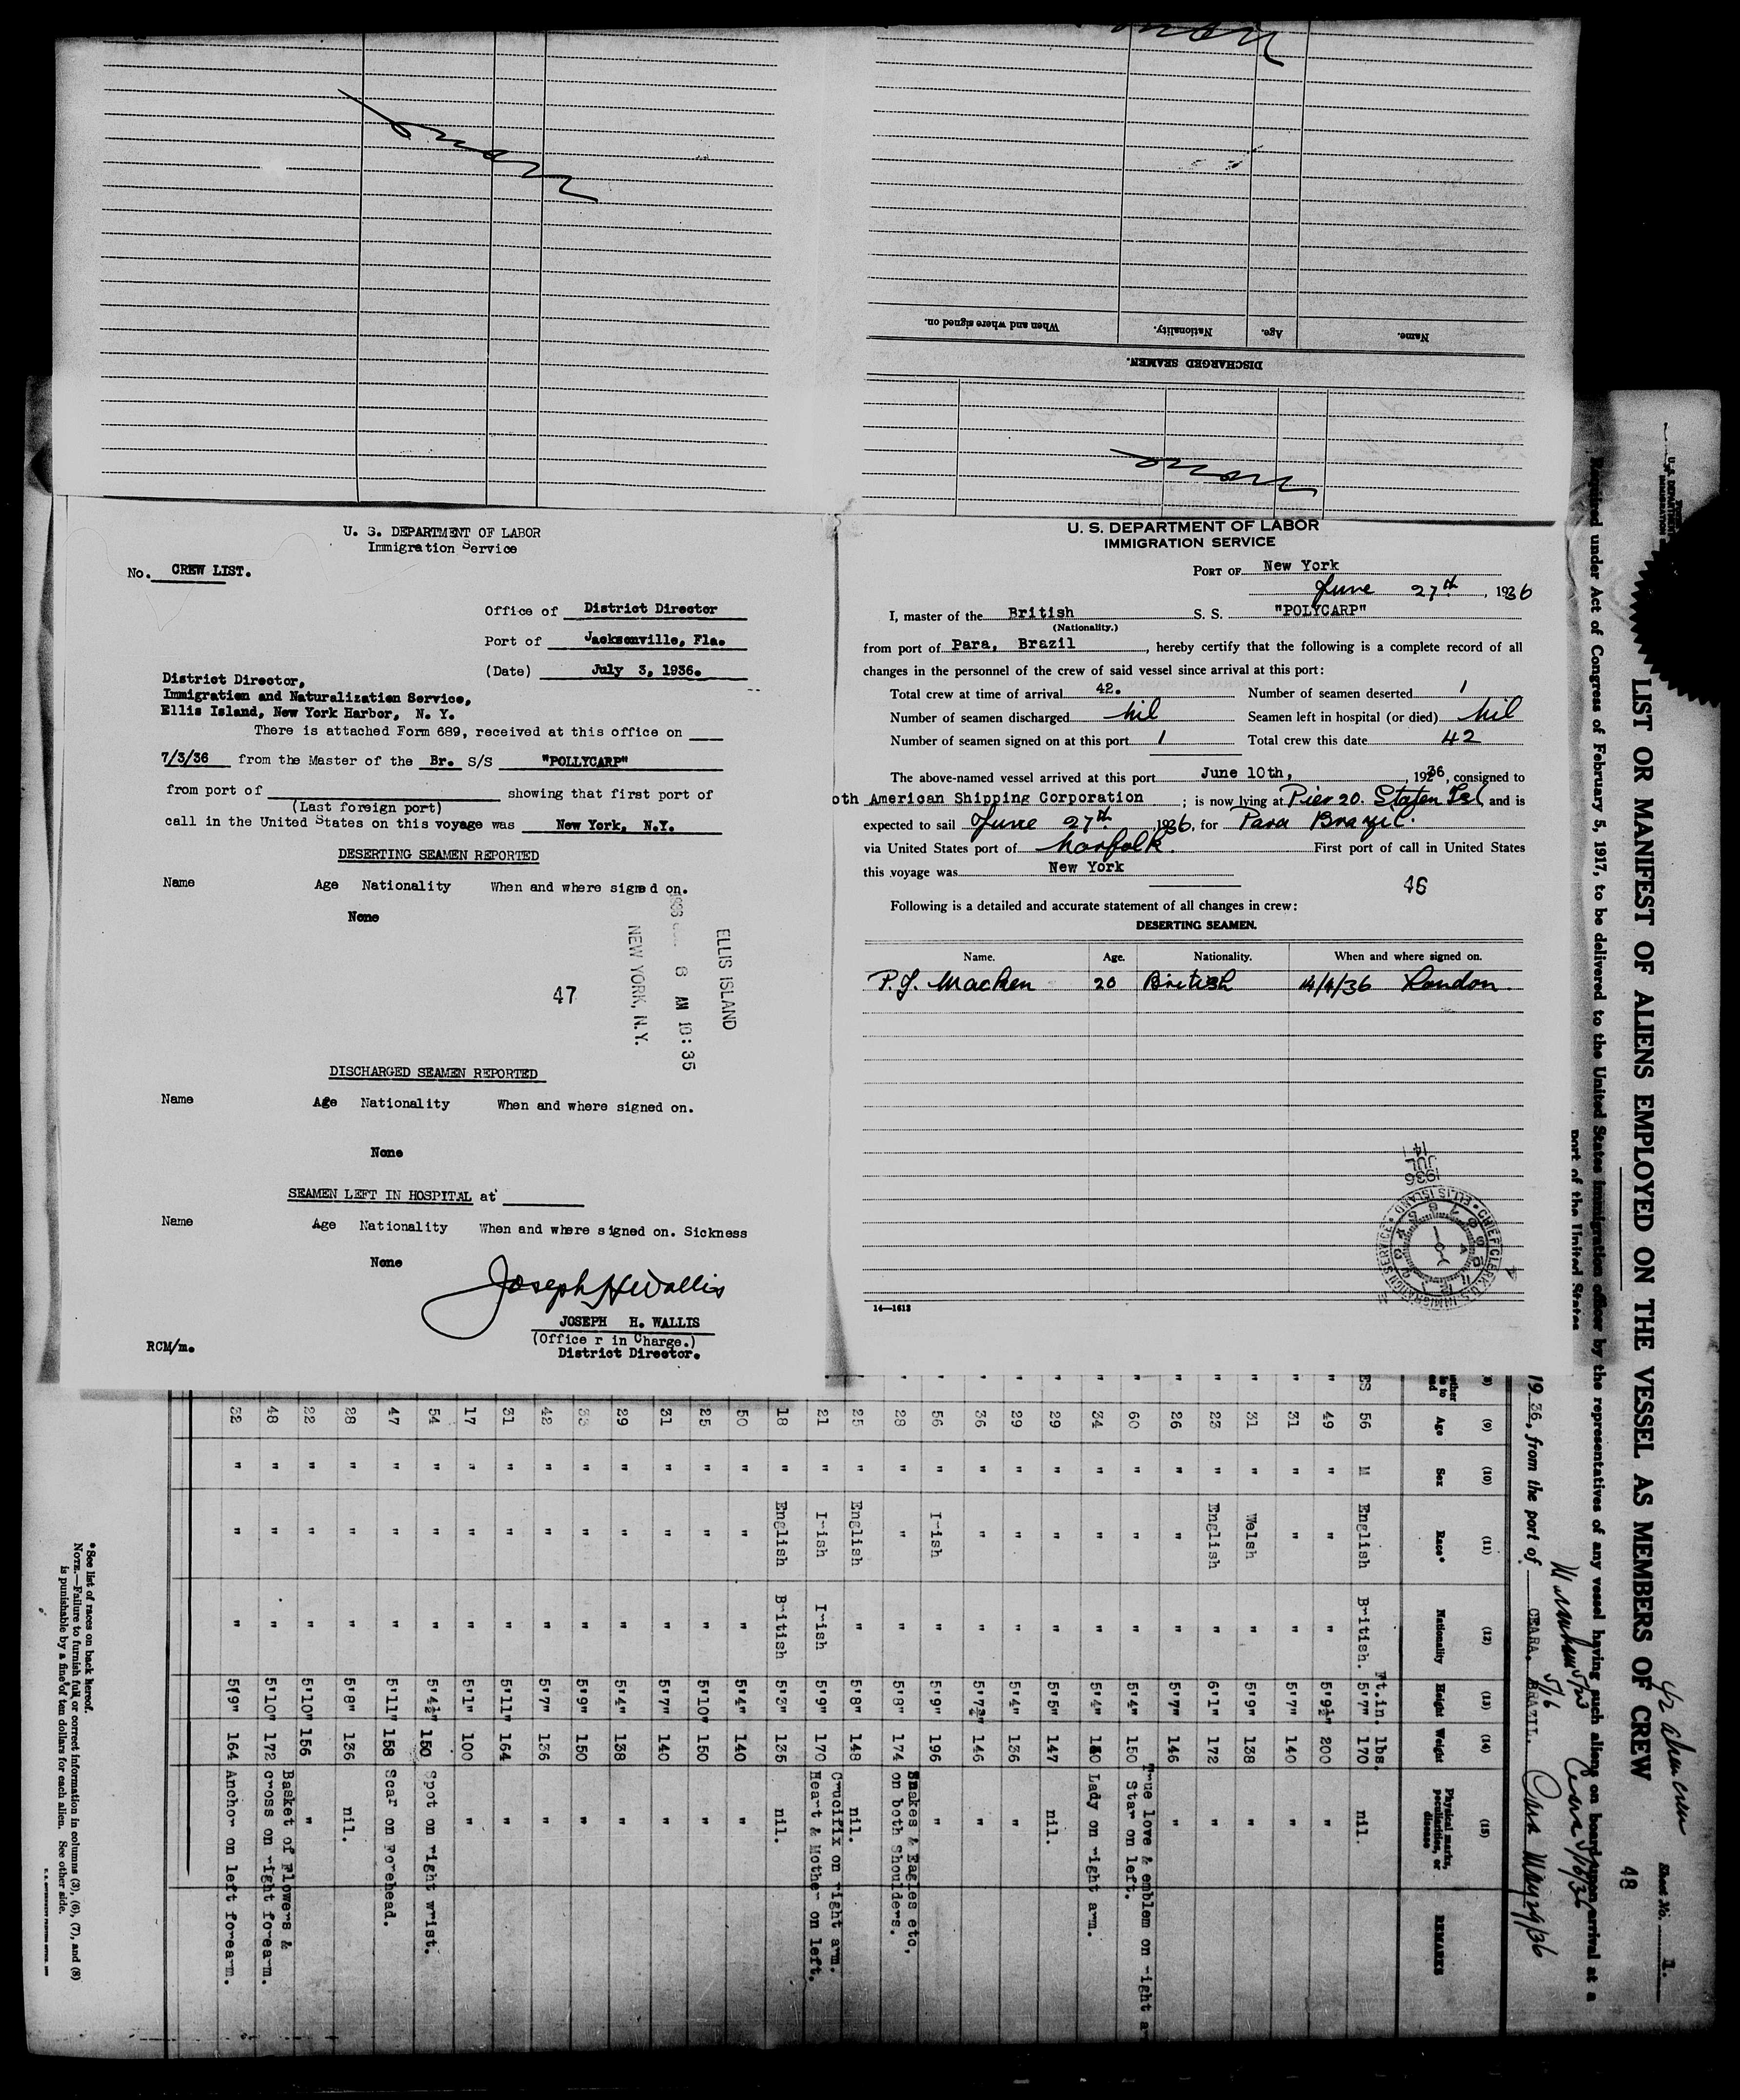 U. S. DEPARTMENT OF LABOR
Immigration Service
No. CREW LIST.
Office of District Director
Port of Jacksonville, Fla.
(Date) July 3, 1936.
District Director,
Immigration and Naturalization Service,
Ellis Island, New York Harbor, N. Y.
There is attached Form 689, received at this office on
7/3/36 from the Master of the Br. S/S "POLLYCARP"
from port of showing that first port of
(Last foreign port)
call in the United States on this voyage was New York, N.Y.
DESERTING SEAMEN REPORTED
Name Age Nationality When and where signed on.
None
ELLIS ISLAND
6 AM 10:35
NEW YORK, N.Y.
47
DISCHARGED SEAMEN REPORTED
Name Age Nationality When and where signed on.
None
SEAMEN LEFT IN HOSPITAL at
Name Age Nationality When and where signed on. Sickness
None
Joseph H Wallis
JOSEPH H. WALLIS
(Officer in Charge.)
District Director.
RCM/m.
When and where signed on. Nationality. Age. Name.
DISCHARGED SEAMEN.
U. S. DEPARTMENT OF LABOR
IMMIGRATION SERVICE
PORT OF New York
June 27th, 1936
I, master of the British S. S. "POLYCARP"
(Nationality.)
from port of Para, Brazil, hereby certify that the following is a complete record of all
changes in the personnel of the crew of said vessel since arrival at this port:
Total crew at time of arrival 42. Number of seamen deserted 1
Number of seamen discharged Nil Seamen left in hospital (or died) Nil
Number of seamen signed on at this port 1 Total crew this date 42
The above-named vessel arrived at this port June 10th, 1936, consigned to
oth American Shipping Corporation ; is now lying at Pier 20. Staten Isl and is
expected to sail June 27th 1936, for Para Brazil.
via United States port of Norfolk. First port of call in United States
this voyage was New York
46
Following is a detailed and accurate statement of all changes in crew:
DESERTING SEAMEN.
Name. Age. Nationality. When and where signed on.
P. J. Macken 20 British 14/4/36 London.
1936 JUL 14
CHIEF CLERK, U.S. IMMIGRATION SERVICE • ELLIS ISLAND
14—1613
Sheet No. 1.
48
LIST OR MANIFEST OF ALIENS EMPLOYED ON THE VESSEL AS MEMBERS OF CREW
Required under Act of Congress of February 5, 1917, to be delivered to the United States immigration officer by the representatives of any vessel having such aliens on board upon arrival at a
port of the United States
1936, from the port of CEARA. BRAZIL. Para May 29/36
(9) (10) (11) (12) (13) (14) (15)
Age Sex Race* Nationality Height Weight Physical marks, peculiarities, or disease REMARKS
Ft.in. lbs.
ES 56 M English British. 5'7" 170 nil.
" 49 " " " 5'9½" 200 "
" 31 " " " 5'7" 140 "
" 31 " Welsh " 5'9" 138 "
" 23 " English " 6'1" 172 "
" 26 " " " 5'7" 146 "
" 60 " " " 5'4" 150 True love & emblem on right a
Star on left.
" 34 " " " 5'4" 150 Lady on right arm.
" 29 " " " 5'5" 147 nil.
" 29 " " " 5'4" 136 "
" 36 " " " 5'7½" 146 "
" 56 " Irish " 5'9" 196 "
" 28 " " " 5'8" 174 Snakes & Eagles etc,
on both Shoulders.
" 25 " English " 5'8" 148 nil.
21 " Irish Irish 5'9" 170 Crucifix on right arm.
Heart & Mother on left.
18 " English British 5'3" 135 nil.
50 " " " 5'4" 140 "
25 " " " 5'10" 150 "
31 " " " 5'7" 140 "
29 " " " 5'4" 138 "
33 " " " 5'9" 150 "
42 " " " 5'7" 136 "
31 " " " 5'11" 164 "
17 " " " 5'1" 100 "
54 " " " 5'4½" 150 Spot on right wrist.
47 " " " 5'11" 158 Scar on Forehead.
28 " " " 5'8" 136 nil.
22 " " " 5'10" 156 "
48 " " " 5'10" 172 Basket of Flowers &
cross on right forearm.
32 " " " 5'9" 164 Anchor on left forearm.
*See list of races on back hereof.
NOTE.—Failure to furnish full or correct information in columns (3), (6), (7), and (8)
is punishable by a fine of ten dollars for each alien. See other side.